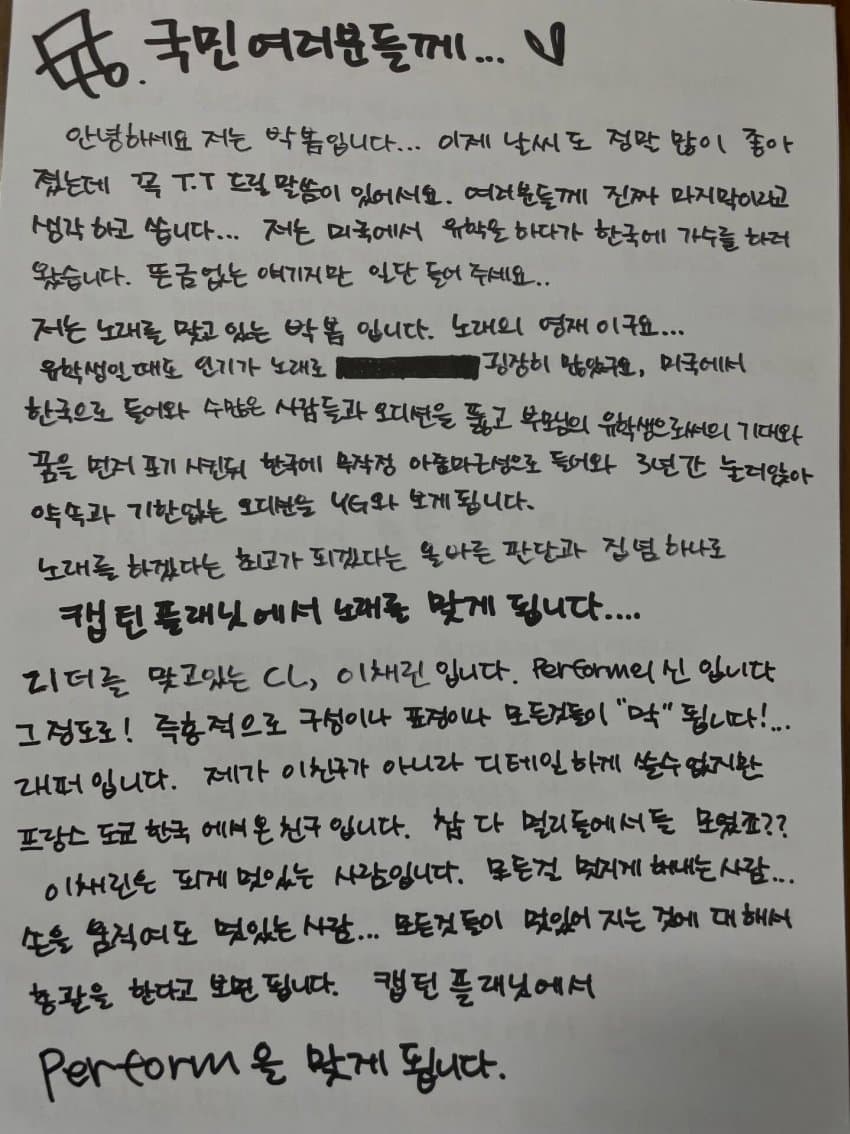 국민여러분들께...
안녕하세요 저는 박봄입니다... 이제 날씨도 정말 많이 좋아
졌는데 꼭 T.T 드릴말씀이 있어서요. 여러분들께 진짜 마지막이라고
생각하고 씁니다... 저는 미국에서 유학을 하다가 한국에 가수를 하러
왔습니다. 뜬금없는 얘기지만 일단 들어 주세요..
저는 노래를 맞고 있는 박봄 입니다. 노래의 영재이구요...
유학생일때도 인기가 노래로 굉장히 많았구요, 미국에서
한국으로 들어와 수많은 사람들과 오디션을 뚫고 부모님의 유학생으로써의 기대와
꿈을 먼저 포기 시킨뒤 한국에 무작정 아줌마근성으로 들어와 3년간 눌러앉아
약속과 기한없는 오디션을 YG와 보게됩니다.
노래를 하겠다는 최고가 되겠다는 올바른 판단과 집념 하나로
캡틴플래닛에서 노래를 맞게 됩니다....
리더를 맞고있는 CL, 이채린입니다. Perform의 신 입니다
그정도로! 즉흥적으로 구성이나 표정이나 모든것들이 "막" 됩니다!...
래퍼입니다. 제가 이친구가 아니라 디테일하게 쓸수없지만
프랑스 도쿄 한국 에서온 친구입니다. 참 다 멀리들에서들 모였죠??
이채린은 되게 멋있는 사람입니다. 모든걸 멋지게 해내는사람...
손을 움직여도 멋있는사람... 모든것들이 멋있어 지는 것에 대해서
총괄을 한다고 보면 됩니다. 캡틴 플래닛에서
Perform을 맞게 됩니다.